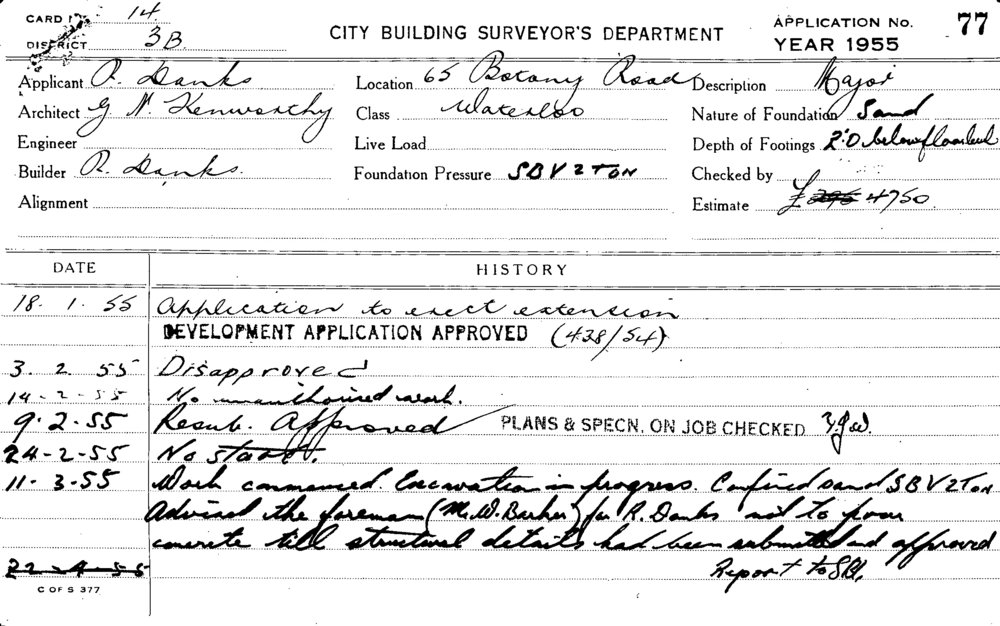 CARD 14
DISTRICT 3B
CITY BUILDING SURVEYOR'S DEPARTMENT
APPLICATION No. 77
YEAR 1955
Applicant R. Danks
Location 65 Botany Road
Description Major
Architect G N. Kenworthy
Class Waterloo
Nature of Foundation Sand
Engineer
Live Load
Depth of Footings 2'.0 below floor level
Builder R. Danks.
Foundation Pressure SBV 2 TON
Checked by
Alignment
Estimate £ 4750.
DATE HISTORY
18. 1. 55 Application to erect extension
DEVELOPMENT APPLICATION APPROVED (438/54)
3. 2. 55 Disapproved
14-2-55 No unauthorised work.
9.2-55 Resub. Approved PLANS & SPECN. ON JOB CHECKED
24-2-55 No start.
11-3-55 Work commenced. Excavation in progress. Confined sand SBV 2 TON
Advised the foreman (Mr. W. Barker) for R. Danks not to pour
concrete till structural details had been submitted and approved
22-4-55 Report to
C OF S 377